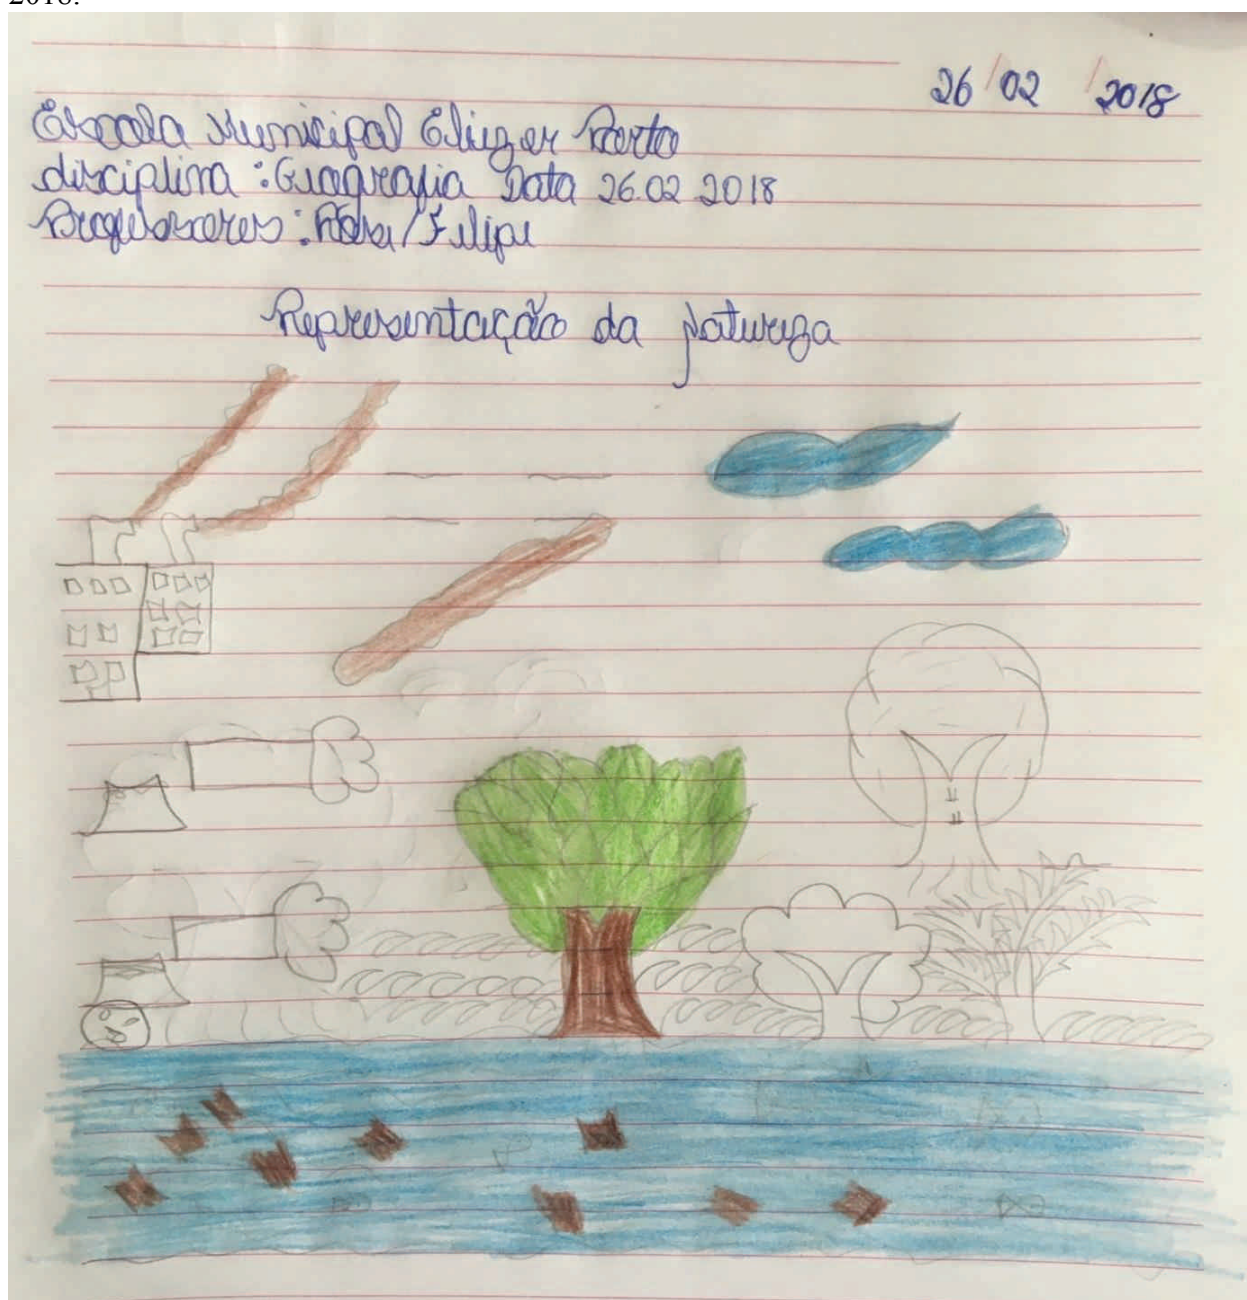 2018.
26/02/2018
Escola Municipal Eliezer Porto
disciplina: Geografia Data 26.02 2018
/Filipe
Representação da Natureza